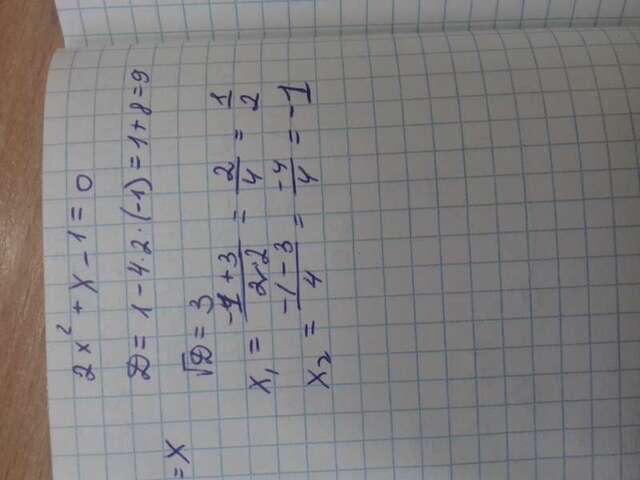 2x² + x - 1 = 0
D = 1 - 4·2·(-1) = 1+8=9
= x
√D = 3
x₁ = (-1 + 3)/(2·2) = 2/4 = 1/2
x₂ = (-1 - 3)/4 = -4/4 = -1